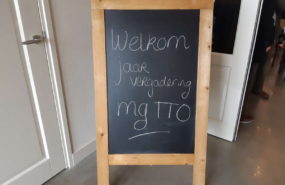 Welkom
jaar
vergadering
mg TTO